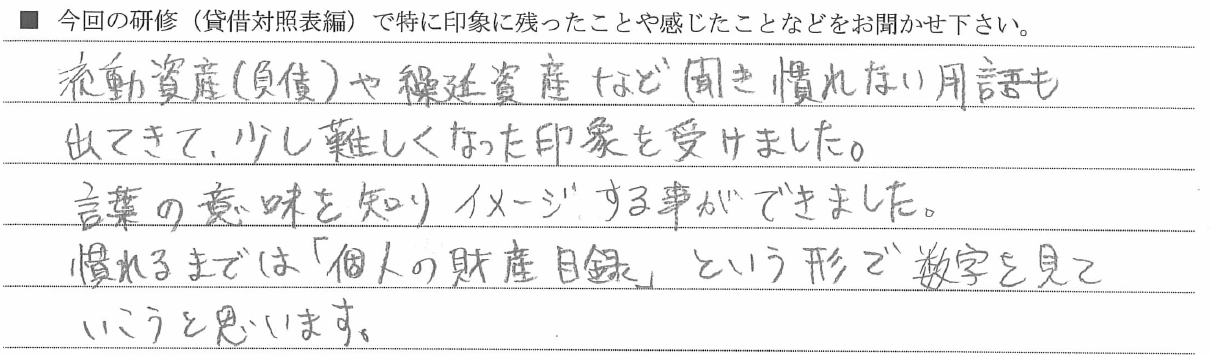 ■ 今回の研修（貸借対照表編）で特に印象に残ったことや感じたことなどをお聞かせ下さい。
流動資産(負債)や繰延資産など聞き慣れない用語も
出てきて、少し難しくなった印象を受けました。
言葉の意味を知りイメージする事ができました。
慣れるまでは「個人の財産目録」という形で数字を見て
いこうと思います。